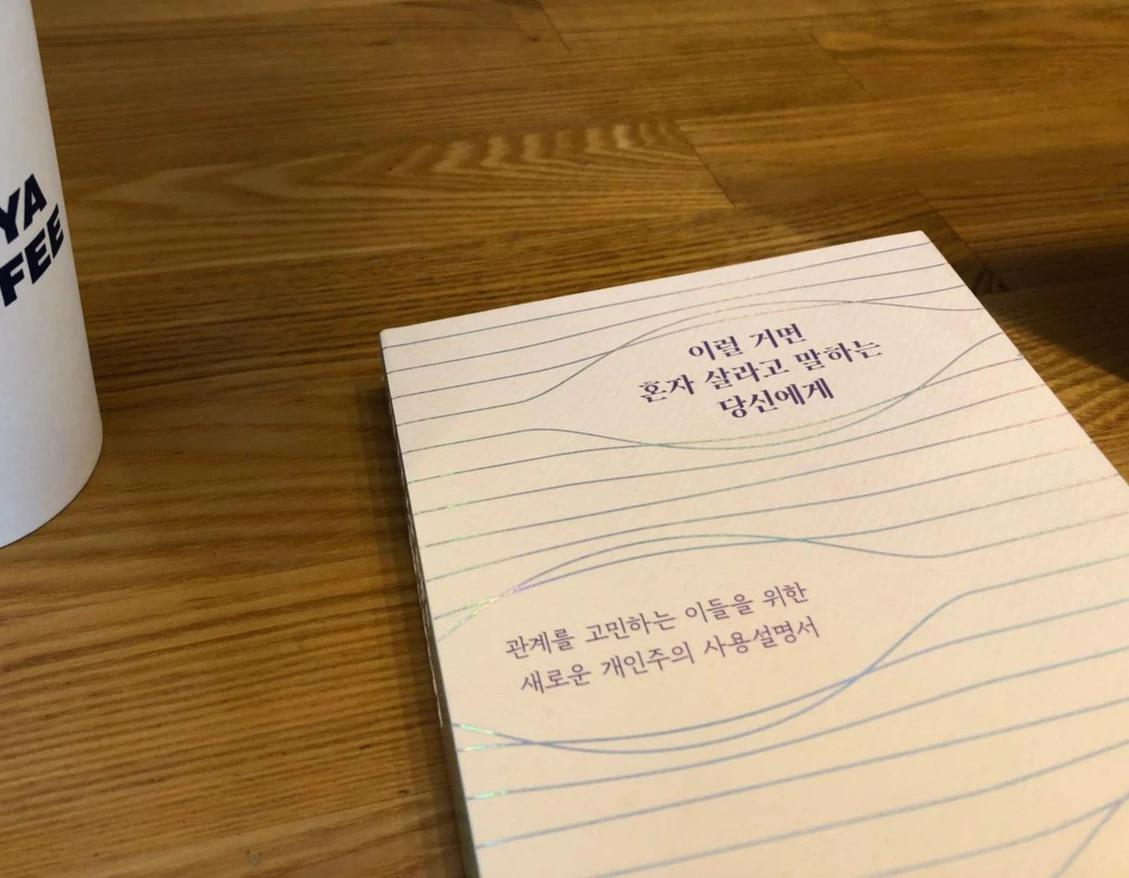 YA
FEE
이럴 거면
혼자 살라고 말하는
당신에게
관계를 고민하는 이들을 위한
새로운 개인주의 사용설명서